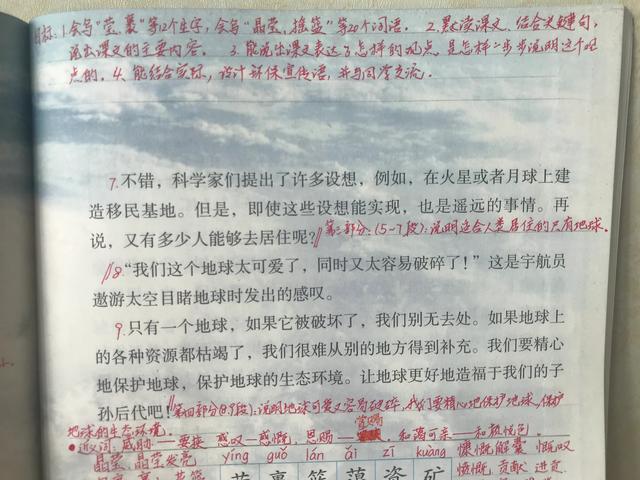 目标:1.会写“莹、裹”等12个生字,会写“晶莹、摇篮”等20个词语。 2.默读课文,结合关键句,
说出课文的主要内容。 3.能说出课文表达了怎样的观点,是怎样一步步说明这个观
点的。4.能结合实际,设计环保宣传语,并与同学交流。
7.不错,科学家们提出了许多设想,例如,在火星或者月球上建
造移民基地。但是,即使这些设想能实现,也是遥远的事情。再
说,又有多少人能够去居住呢?∥第三部分:(5-7段):说明适合人类居住的只有地球。
∥8.“我们这个地球太可爱了,同时又太容易破碎了!”这是宇航员
遨游太空目睹地球时发出的感叹。
9.只有一个地球,如果它被破坏了,我们别无去处。如果地球上
的各种资源都枯竭了,我们很难从别的地方得到补充。我们要精心
地保护地球,保护地球的生态环境。让地球更好地造福于我们的子
孙后代吧!∥第四部分(8.9段):说明地球可爱又容易破碎,我们要精心地保护地球,保护
地球的生态环境。
●近义词:威胁——要挟 感叹—感慨 恩赐—赏赐 和蔼可亲—和颜悦色
晶莹、晶莹发亮 yíng guǒ lán ǎi zī kuàng 慷慨解囊 慨叹
愤慨 贡献 进贡
莹 裹 篮 蔼 资 矿